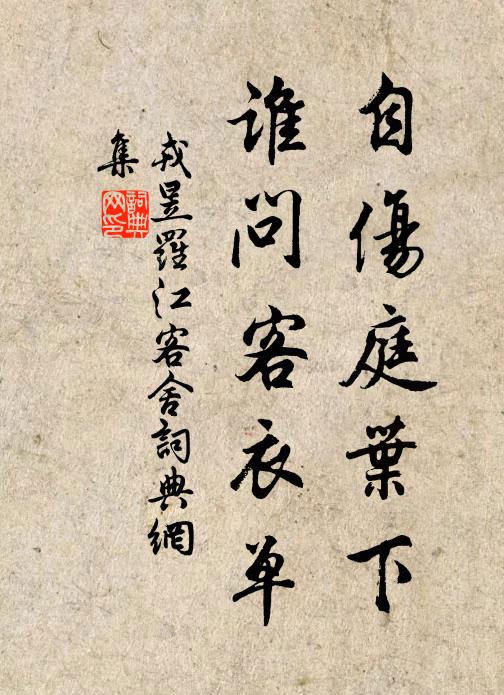 自傷庭葉下
誰問客衣单
戎昱羅江客舍詞典網
集
詞典
网印